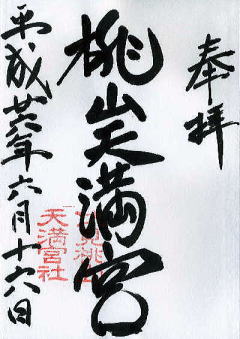 奉拝
桃山天満宮
天満宮社
平成廿六年六月十六日